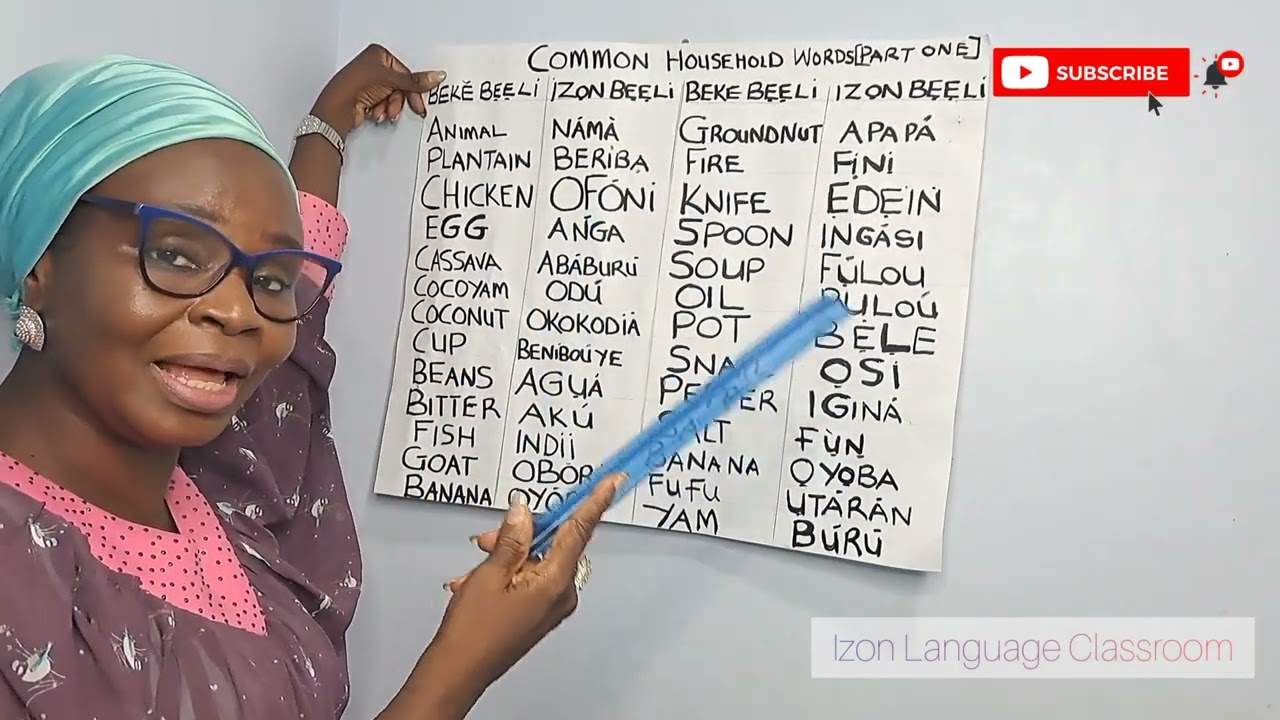 COMMON HOUSEHOLD WORDS[PART ONE]
BEKẸ BẸẸLI IZON BẸẸLI BEKE BẸẸLI IZON BẸẸLI
ANIMAL NÁMÀ GROUNDNUT APAPÁ
PLANTAIN BERIBA FIRE FỊNỊ
CHICKEN OFÓNI KNIFE ẸDẸIN
EGG AŃGA SPOON INGÁSI
CASSAVA ABÁBURŪ SOUP FÚLOU
COCOYAM ODÚ OIL PULOÚ
COCONUT OKOKODIÄ POT BẸLE
CUP BENIBOÚYE ỌSỊ
BEANS AGỤÁ PEPPER IGINÁ
BITTER AKÚ SALT FÙN
FISH INDÍI BANANA ỌYỌBA
GOAT FUFU ỤTÁRÁN
BANANA YAM BÚRŪ
SUBSCRIBE
Izon Language Classroom